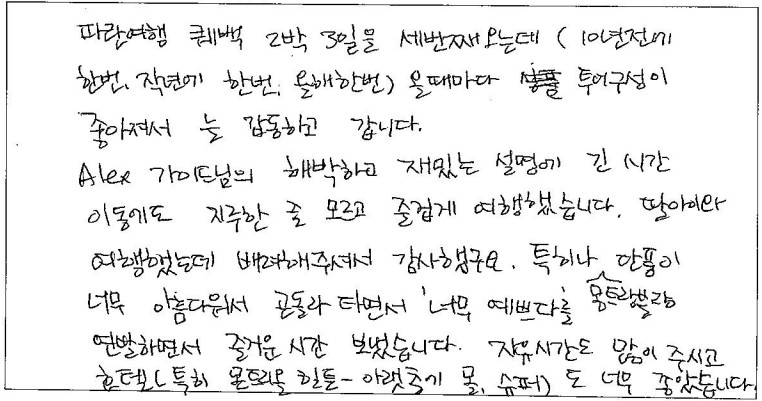 파란여행 퀘백 2박 3일을 세번째오는데 (10년전에
한번, 작년에 한번, 올해한번) 올때마다 투어구성이
좋아져서 늘 감동하고 갑니다.
Alex 가이드님의 해박하고 재밌는 설명에 긴 시간
이동에도 지루한 줄 모르고 즐겁게 여행했습니다. 딸아이와
여행했는데 배려해주셔서 감사했구요. 특히나 단풍이
너무 아름다워서 곤돌라 타면서 '너무 예쁘다'를 몽트랑블랑
연발하면서 즐거운 시간 보냈습니다. 자유시간도 많이 주시고
호텔(특히 몬트리올 힐튼- 아랫층가 몰, 슈퍼)도 너무 좋았습니다.